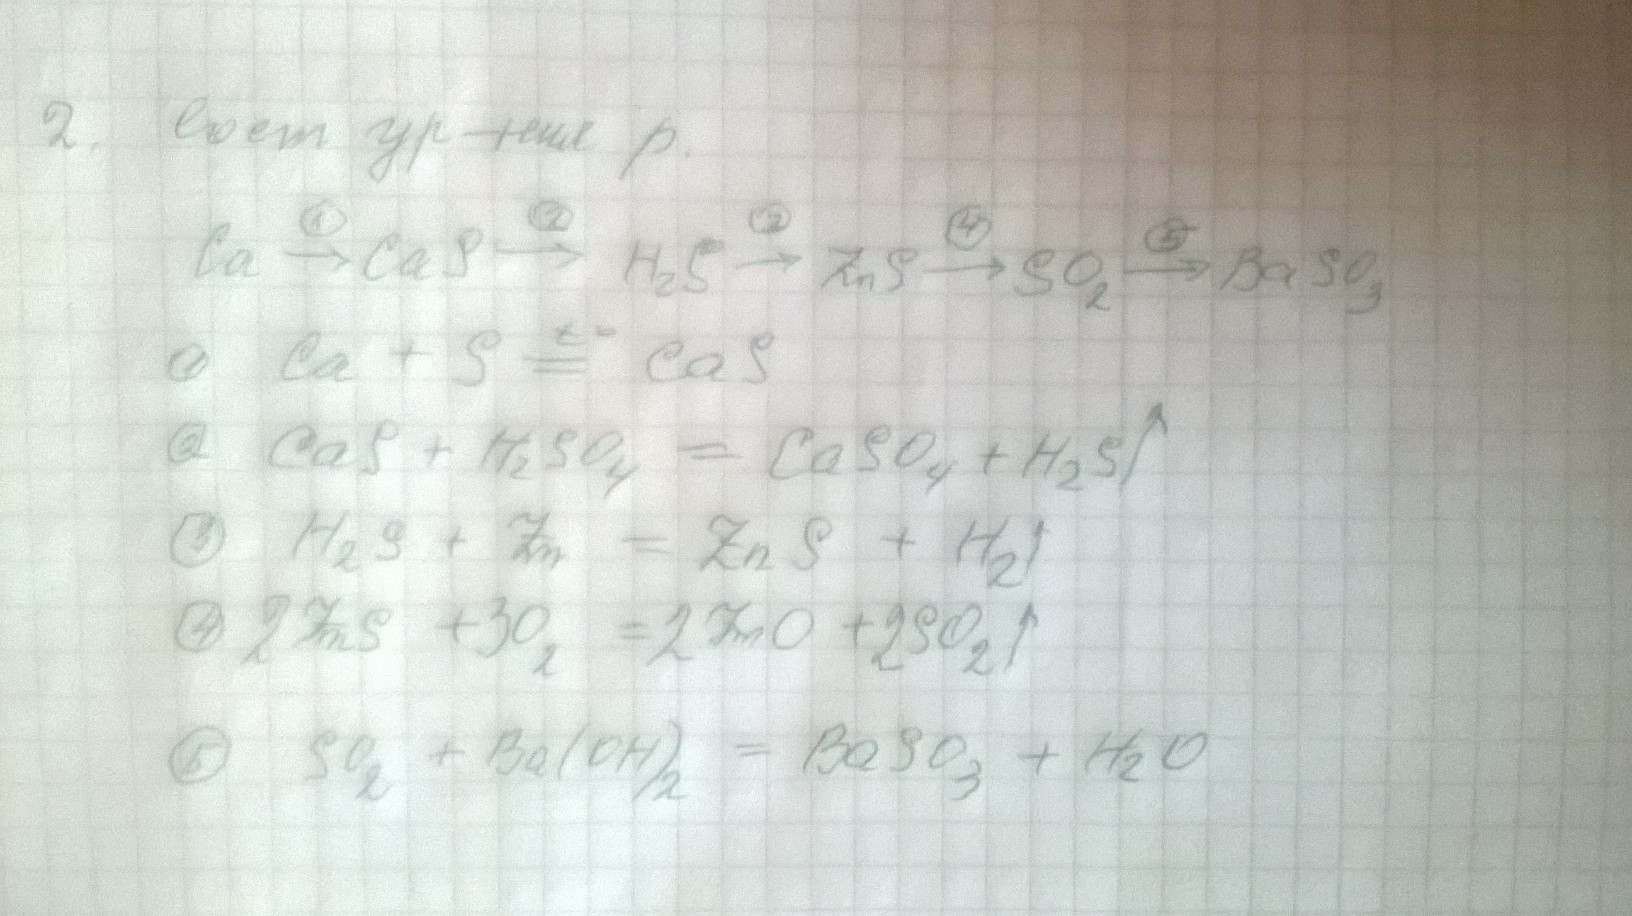 2. Сост ур-ние р.
Ca ①→ CaS ②→ H₂S ③→ ZnS ④→ SO₂ ⑤→ BaSO₃
① Ca + S =t°= CaS
② CaS + H₂SO₄ = CaSO₄ + H₂S↑
③ H₂S + Zn = ZnS + H₂↑
④ 2ZnS + 3O₂ = 2ZnO + 2SO₂↑
⑤ SO₂ + Ba(OH)₂ = BaSO₃ + H₂O